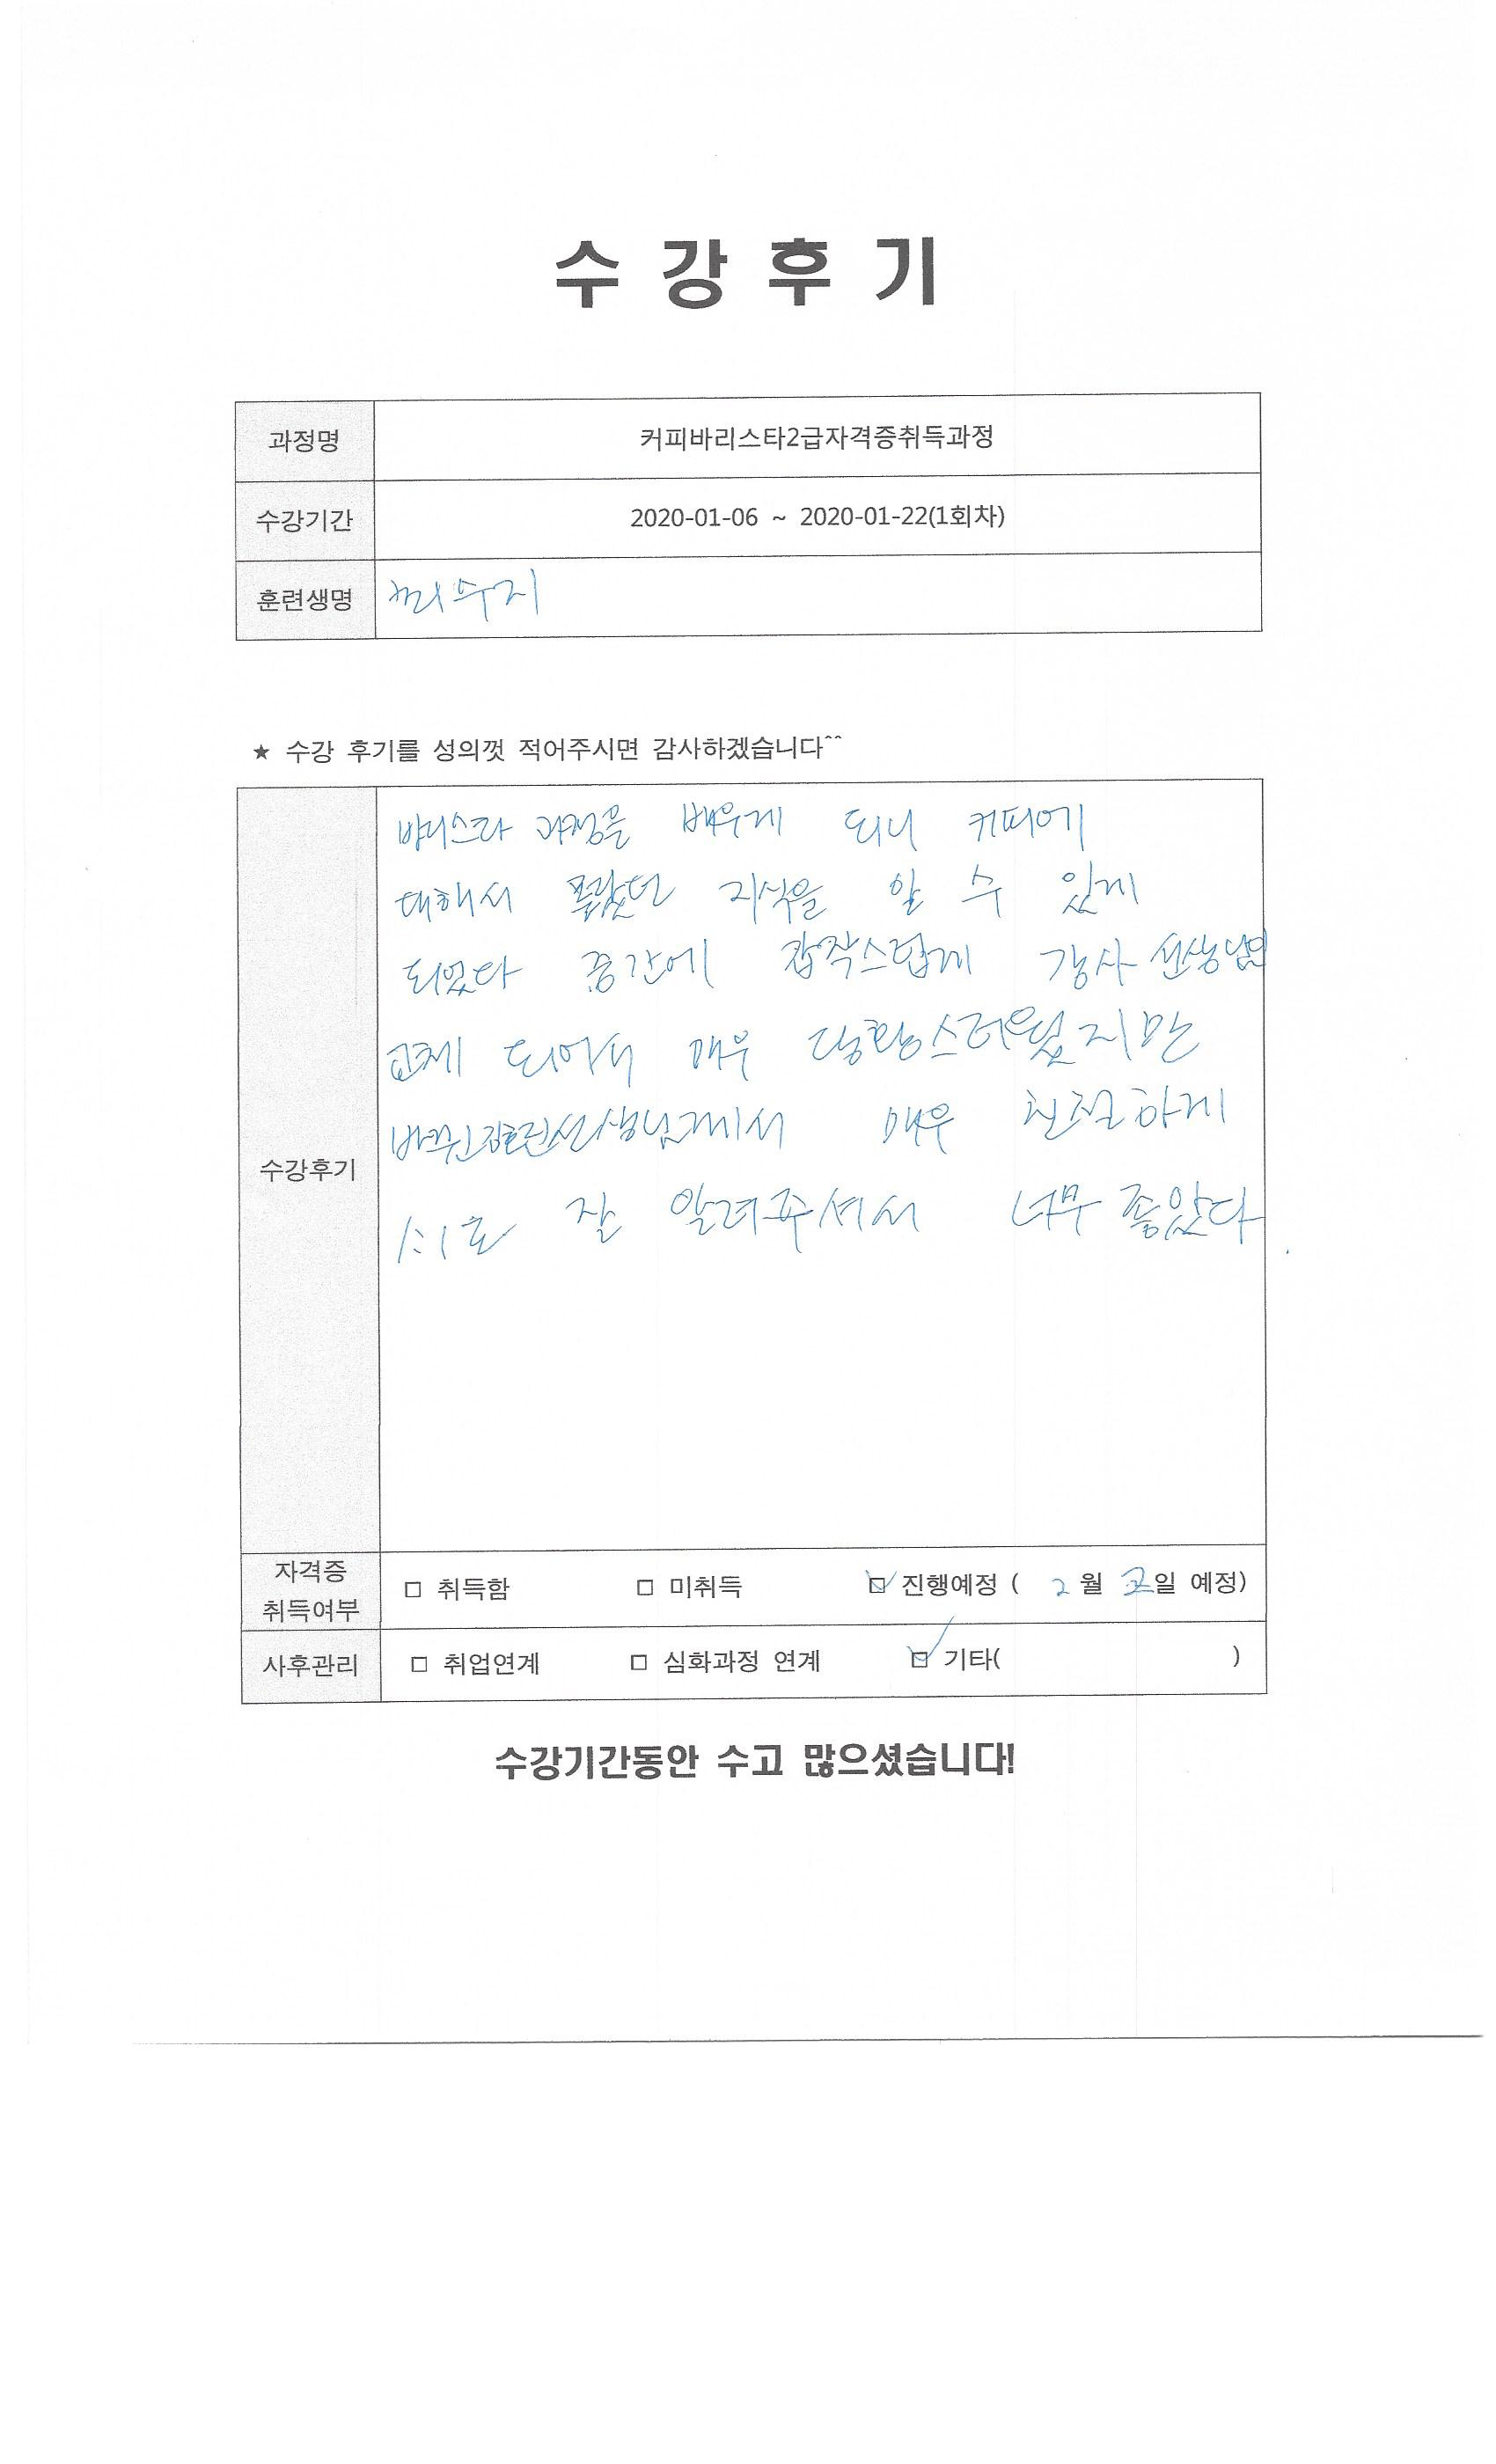 수 강 후 기
과정명 커피바리스타2급자격증취득과정
수강기간 2020-01-06 ~ 2020-01-22(1회차)
훈련생명 수지
★ 수강 후기를 성의껏 적어주시면 감사하겠습니다^^
바리스타 과정을 배우게 되니 커피에
대해서 몰랐던 지식을 알 수 있게
되었다 중간에 갑작스럽게 강사 선생님이
교체 되어서 매우 당황스러웠지만
바뀐 선생님께서 매우 친절하게
1:1로 잘 알려주셔서 너무 좋았다.
수강후기
자격증
취득여부 □ 취득함 □ 미취득 ☑ 진행예정 ( 2 월 일 예정)
사후관리 □ 취업연계 □ 심화과정 연계 ☑ 기타( )
수강기간동안 수고 많으셨습니다!